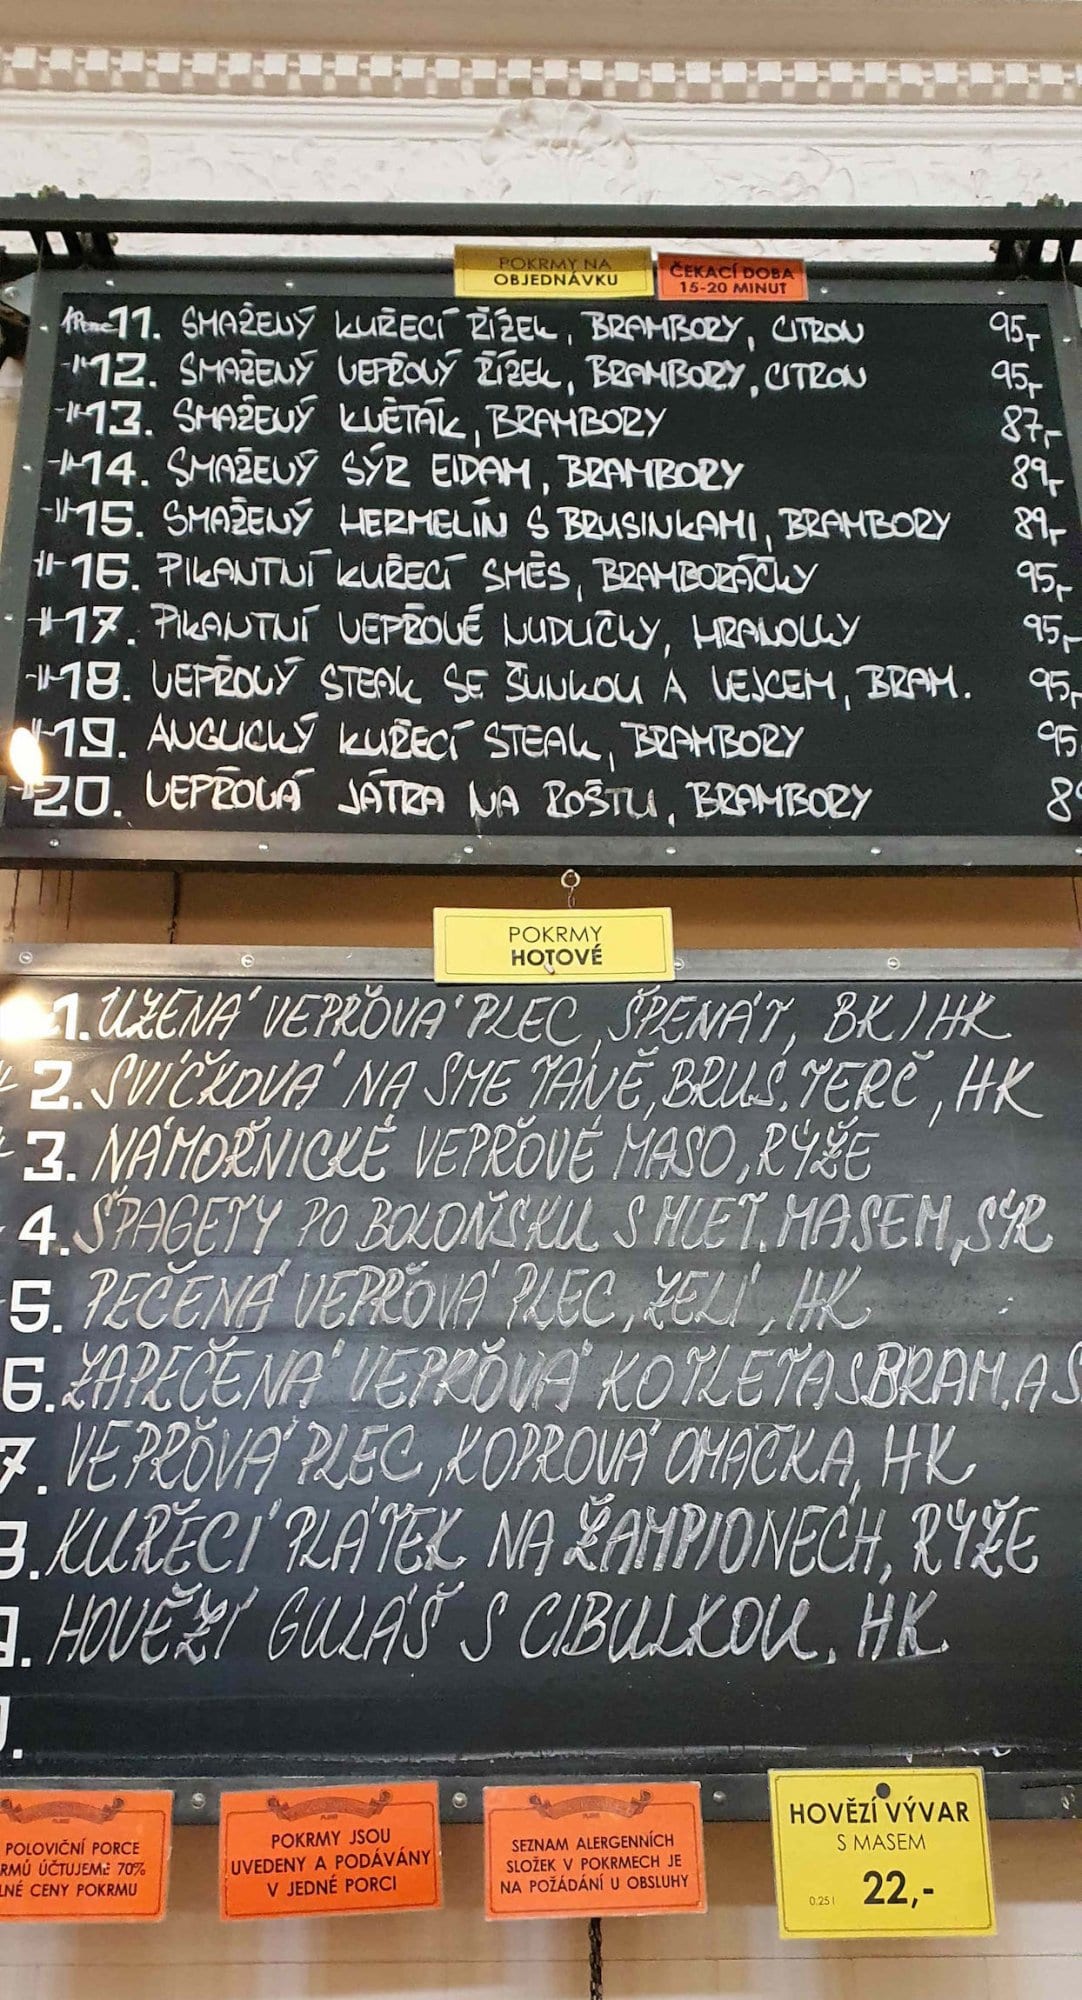 POKRMY NA
OBJEDNÁVKU
ČEKACÍ DOBA
15-20 MINUT
11. SMAŽENÝ KUŘECÍ ŘÍZEK, BRAMBORY, CITRON 95,-
-"- 12. SMAŽENÝ VEPŘOVÝ ŘÍZEK, BRAMBORY, CITRON 95,-
-"- 13. SMAŽENÝ KVĚTÁK, BRAMBORY 87,-
-"- 14. SMAŽENÝ SÝR EIDAM, BRAMBORY 89,-
-"- 15. SMAŽENÝ HERMELÍN S BRUSINKAMI, BRAMBORY 89,-
-"- 16. PIKANTNÍ KUŘECÍ SMĚS, BRAMBORÁČKY 95,-
-"- 17. PIKANTNÍ VEPŘOVÉ NUDLIČKY, HRANOLKY 95,-
-"- 18. VEPŘOVÝ STEAK SE ŠUNKOU A VEJCEM, BRAM. 95,-
-"- 19. ANGLICKÝ KUŘECÍ STEAK, BRAMBORY 95
-"- 20. VEPŘOVÁ JÁTRA NA ROŠTU, BRAMBORY
POKRMY
HOTOVÉ
1. UZENÁ VEPŘOVÁ PLEC, ŠPENÁT, BK/HK
2. SVÍČKOVÁ NA SMETANĚ, BRUS. TERČ, HK
3. NÁMOŘNICKÉ VEPŘOVÉ MASO, RÝŽE
4. ŠPAGETY PO BOLOŇSKU S MLET. MASEM, SÝR
5. PEČENÁ VEPŘOVÁ PLEC, ZELÍ, HK
6. ZAPEČENÁ VEPŘOVÁ KOTLETA S BRAM. A S
7. VEPŘOVÁ PLEC, KOPROVÁ OMÁČKA, HK
8. KUŘECÍ PLÁTEK NA ŽAMPIONECH, RÝŽE
9. HOVĚZÍ GULÁŠ S CIBULKOU, HK
POLOVIČNÍ PORCE
RMŮ ÚČTUJEME 70%
LNÉ CENY POKRMU
POKRMY JSOU
UVEDENY A PODÁVÁNY
V JEDNÉ PORCI
SEZNAM ALERGENNÍCH
SLOŽEK V POKRMECH JE
NA POŽÁDÁNÍ U OBSLUHY
HOVĚZÍ VÝVAR
S MASEM
0.25 l 22,-